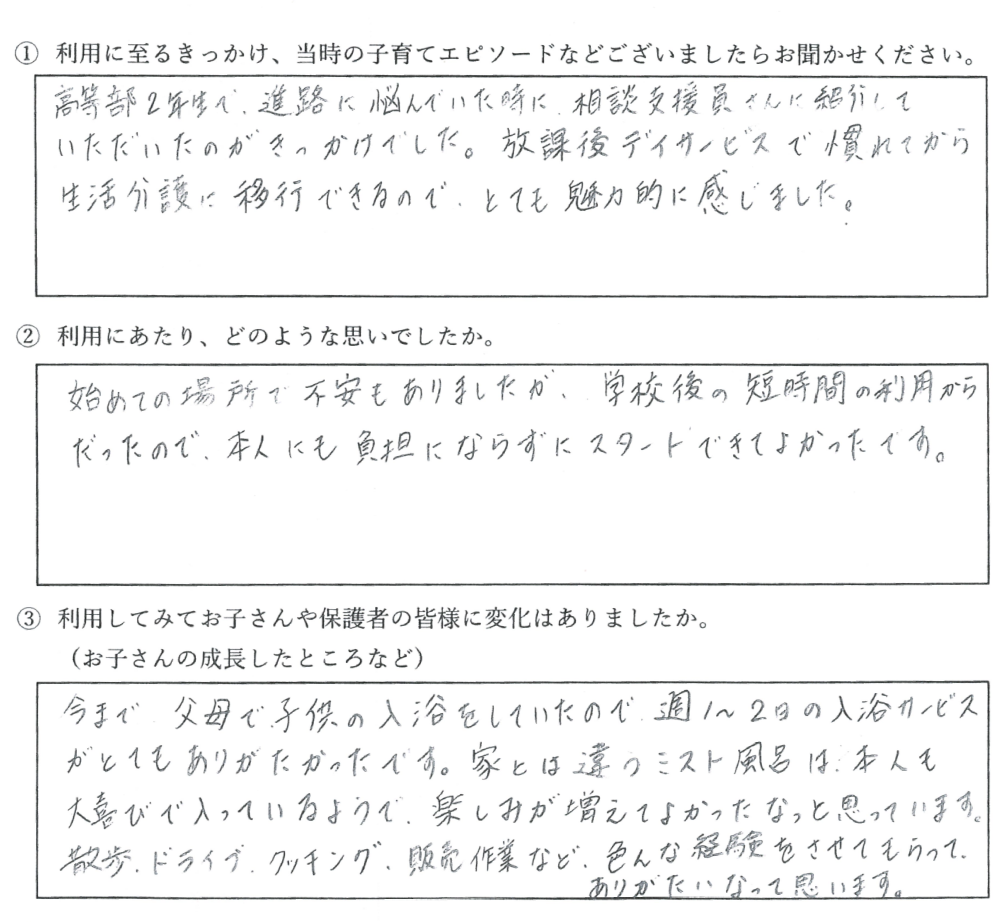 ① 利用に至るきっかけ、当時の子育てエピソードなどございましたらお聞かせください。
高等部2年生で、進路に悩んでいた時に、相談支援員さんに紹介して
いただいたのがきっかけでした。放課後デイサービスで慣れてから
生活介護に移行できるので、とても魅力的に感じました。
② 利用にあたり、どのような思いでしたか。
始めての場所で不安もありましたが、学校後の短時間の利用から
だったので、本人にも負担にならずにスタートできてよかったです。
③ 利用してみてお子さんや保護者の皆様に変化はありましたか。
(お子さんの成長したところなど)
今まで、父母で子供の入浴をしていたので、週1〜2日の入浴サービス
がとてもありがたかったです。家とは違うミスト風呂は、本人も
大喜びで入っているようで、楽しみが増えてよかったなっと思っています。
散歩、ドライブ、クッキング、販売作業など、色んな経験をさせてもらって、
ありがたいなって思います。